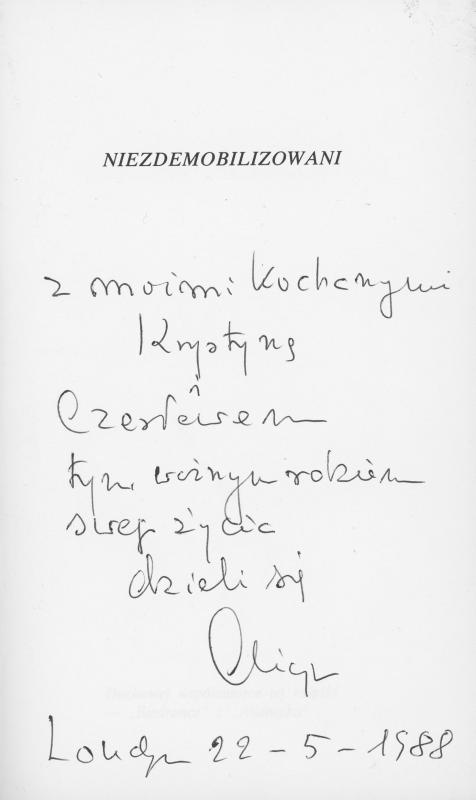 NIEZDEMOBILIZOWANI
z moimi Kochanymi
Krystyną
i
Czesławem
tym ważnym rokiem
swego życia
dzieli się
Alicja
Londyn 22-5-1988